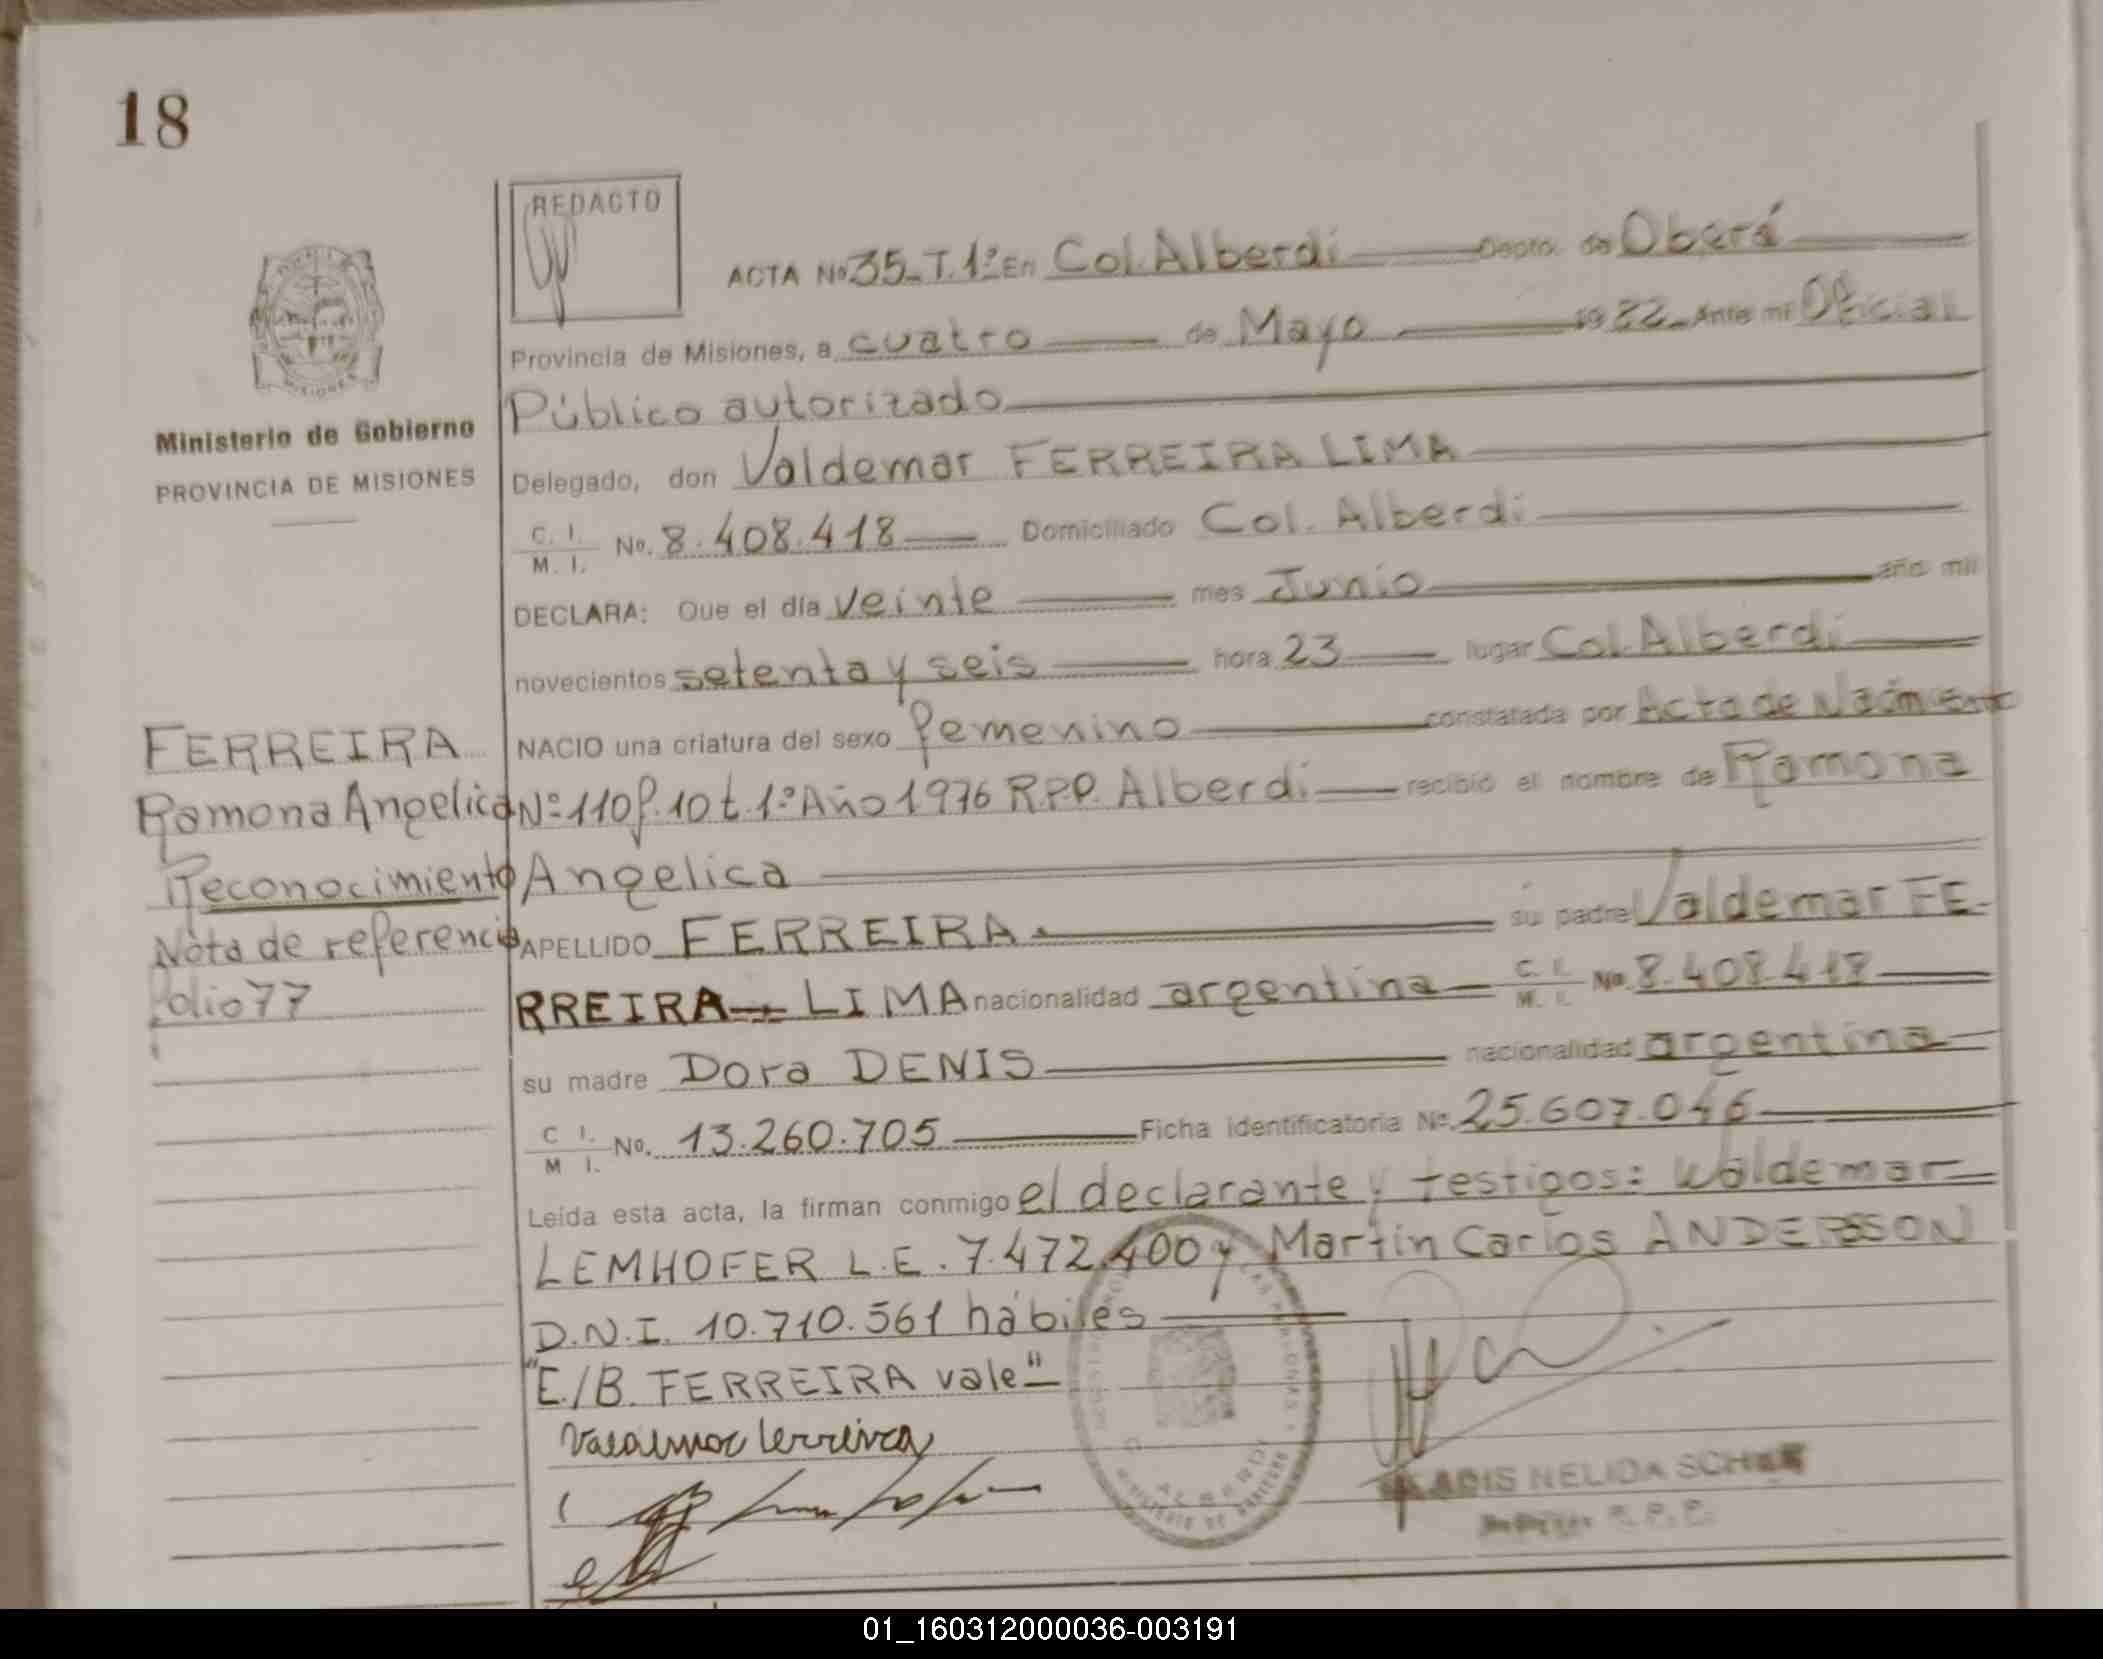 18
REDACTO
ACTA No 35-T.1º En Col. Alberdi Depto. de Oberá
Provincia de Misiones, a cuatro de Mayo 1982 Ante mi Oficial
Ministerio de Gobierno
PROVINCIA DE MISIONES
Público autorizado
Delegado, don Valdemar FERREIRA LIMA
C. I. M. I. No. 8.408.418 Domiciliado Col. Alberdi
DECLARA: Que el día veinte mes Junio año mil
novecientos setenta y seis hora 23 lugar Col. Alberdi
NACIO una criatura del sexo femenino constatada por Acta de Nacimiento
Nº 110 f. 10 t. 1º Año 1976 R.P.P. Alberdi recibió el nombre de Ramona
Angelica
APELLIDO FERREIRA su padre Valdemar FE-
RREIRA LIMA nacionalidad argentina C. I. M. I. No. 8.408.418
su madre Dora DENIS nacionalidad argentina
C I. M I. No. 13.260.705 Ficha identificatoria No. 25.607.046
Leída esta acta, la firman conmigo el declarante y testigos: Waldemar
LEMHOFER L.E. 7.472.400 y Martin Carlos ANDERSSON
D.N.I. 10.710.561 hábiles
"E/B. FERREIRA vale"
FERREIRA
Ramona Angelica
Reconocimiento
Nota de referencia
folio 77
Valdemar Ferreira
NELIDA
01_160312000036-003191